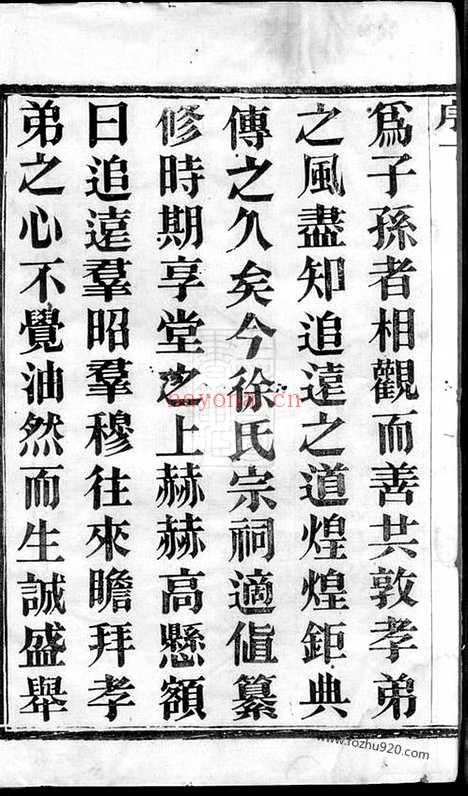 序一
爲子孫者相觀而善共敦孝弟
之風盡知追遠之道煌煌鉅典
傳之久矣今徐氏宗祠適值纂
修時期享堂之上赫赫高懸額
曰追遠羣昭羣穆往來瞻拜孝
弟之心不覺油然而生誠盛舉
nayona.cn
www.fozhu920.com